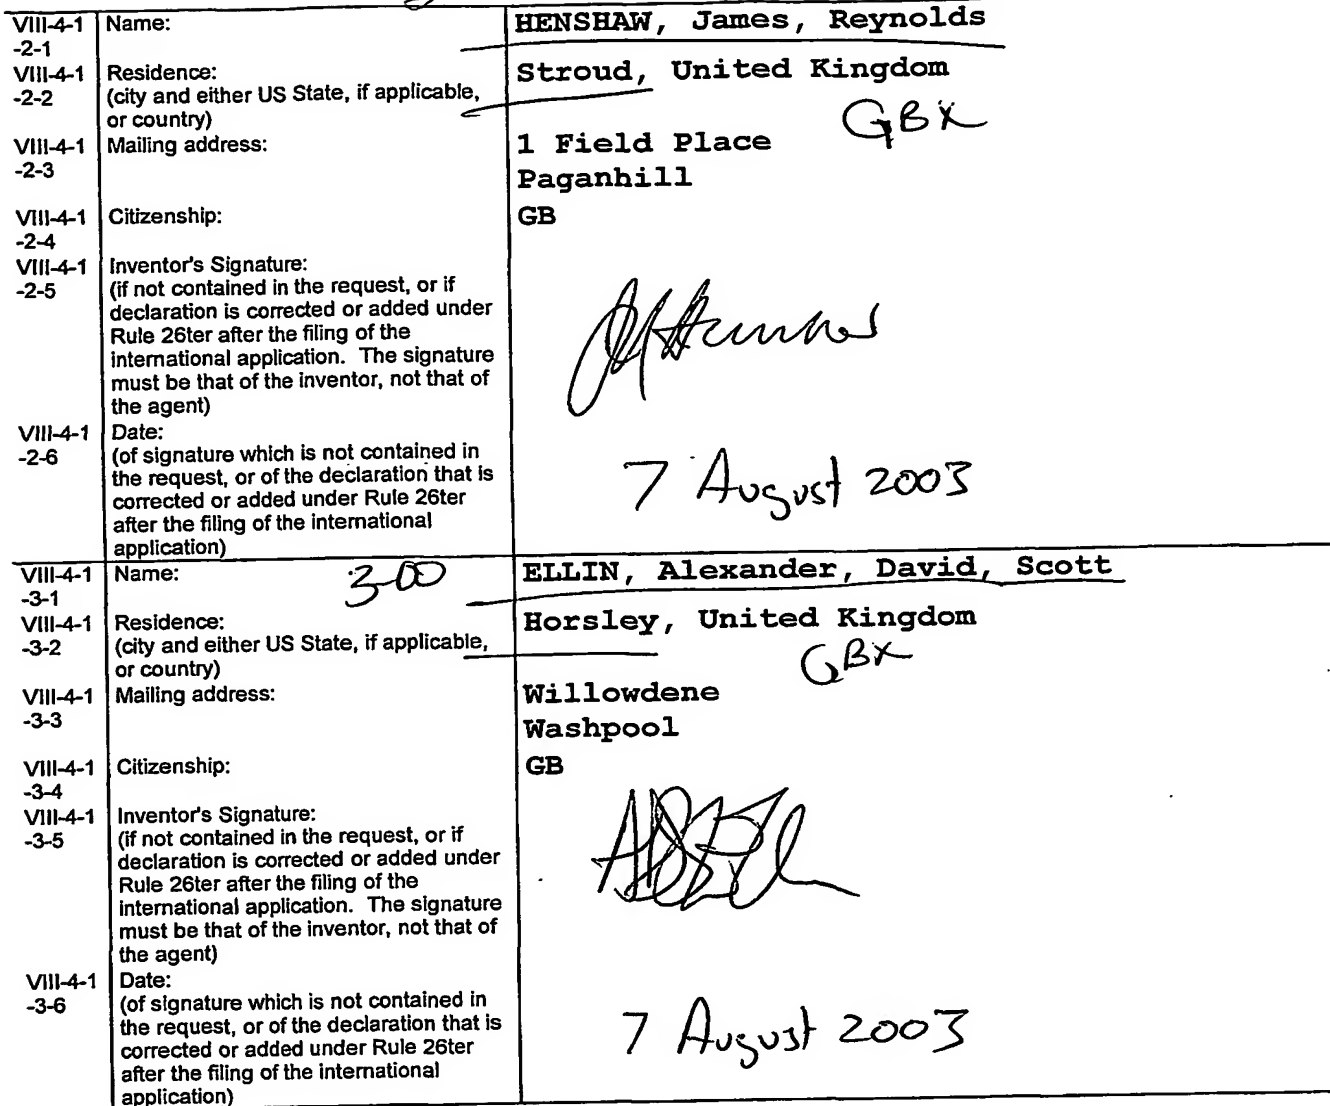 VIII-4-1 Name: HENSHAW, James, Reynolds
-2-1
VIII-4-1 Residence: Stroud, United Kingdom
-2-2 (city and either US State, if applicable,
or country) GBX
VIII-4-1 Mailing address: 1 Field Place
-2-3 Paganhill
VIII-4-1 Citizenship: GB
-2-4
VIII-4-1 Inventor's Signature:
-2-5 (if not contained in the request, or if
declaration is corrected or added under
Rule 26ter after the filing of the
international application. The signature
must be that of the inventor, not that of
the agent)
VIII-4-1 Date:
-2-6 (of signature which is not contained in
the request, or of the declaration that is
corrected or added under Rule 26ter
after the filing of the international
application)
7 August 2003
VIII-4-1 Name: 3-00 ELLIN, Alexander, David, Scott
-3-1
VIII-4-1 Residence: Horsley, United Kingdom
-3-2 (city and either US State, if applicable,
or country) GBX
VIII-4-1 Mailing address: Willowdene
-3-3 Washpool
VIII-4-1 Citizenship: GB
-3-4
VIII-4-1 Inventor's Signature:
-3-5 (if not contained in the request, or if
declaration is corrected or added under
Rule 26ter after the filing of the
international application. The signature
must be that of the inventor, not that of
the agent)
VIII-4-1 Date:
-3-6 (of signature which is not contained in
the request, or of the declaration that is
corrected or added under Rule 26ter
after the filing of the international
application)
7 August 2003